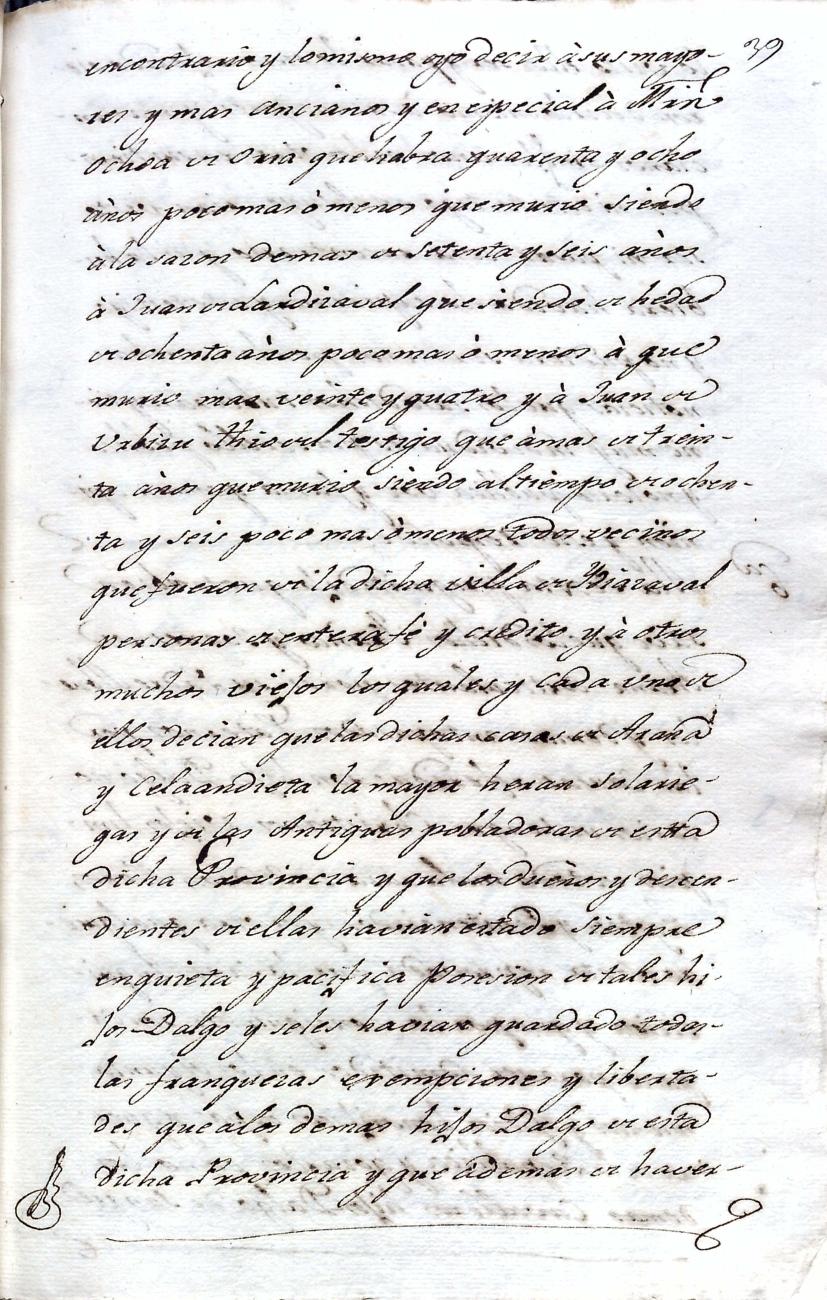 39
encontrario y lo mismo oyo decir à sus mayo-
res y mas ancianos y en especial à Mrñ
Ochoa de Oria que habra quarenta y ocho
años poco mas ò menos que murio siendo
à la sazon de mas de setenta y seis años
à Juan de Lardizaval que siendo de hedad
de ochenta años poco mas ò menos à que
murio mas veinte y quatro y à Juan de
Urbizu thio del testigo que à mas de trein-
ta años que murio siendo al tiempo de ochen-
ta y seis poco mas ò menos todos vecinos
que fueron de la dicha villa de Ydiazaval
personas de entera fè y credito y à otros
muchos viejos los quales y cada uno de
ellos decian que las dichas casas de Arana
y Celaandieta la mayor heran solarie-
gas y de las Antiguas pobladoras de esta
dicha Provincia y que los dueños y descen-
dientes de ellas havian estado siempre
en quieta y pacifica Posesion de tales hi-
jos Dalgo y seles havian guardado todas
las franquezas exempciones y liberta-
des que à los demas hijos Dalgo de esta
dicha Provincia y que ademas de haver-